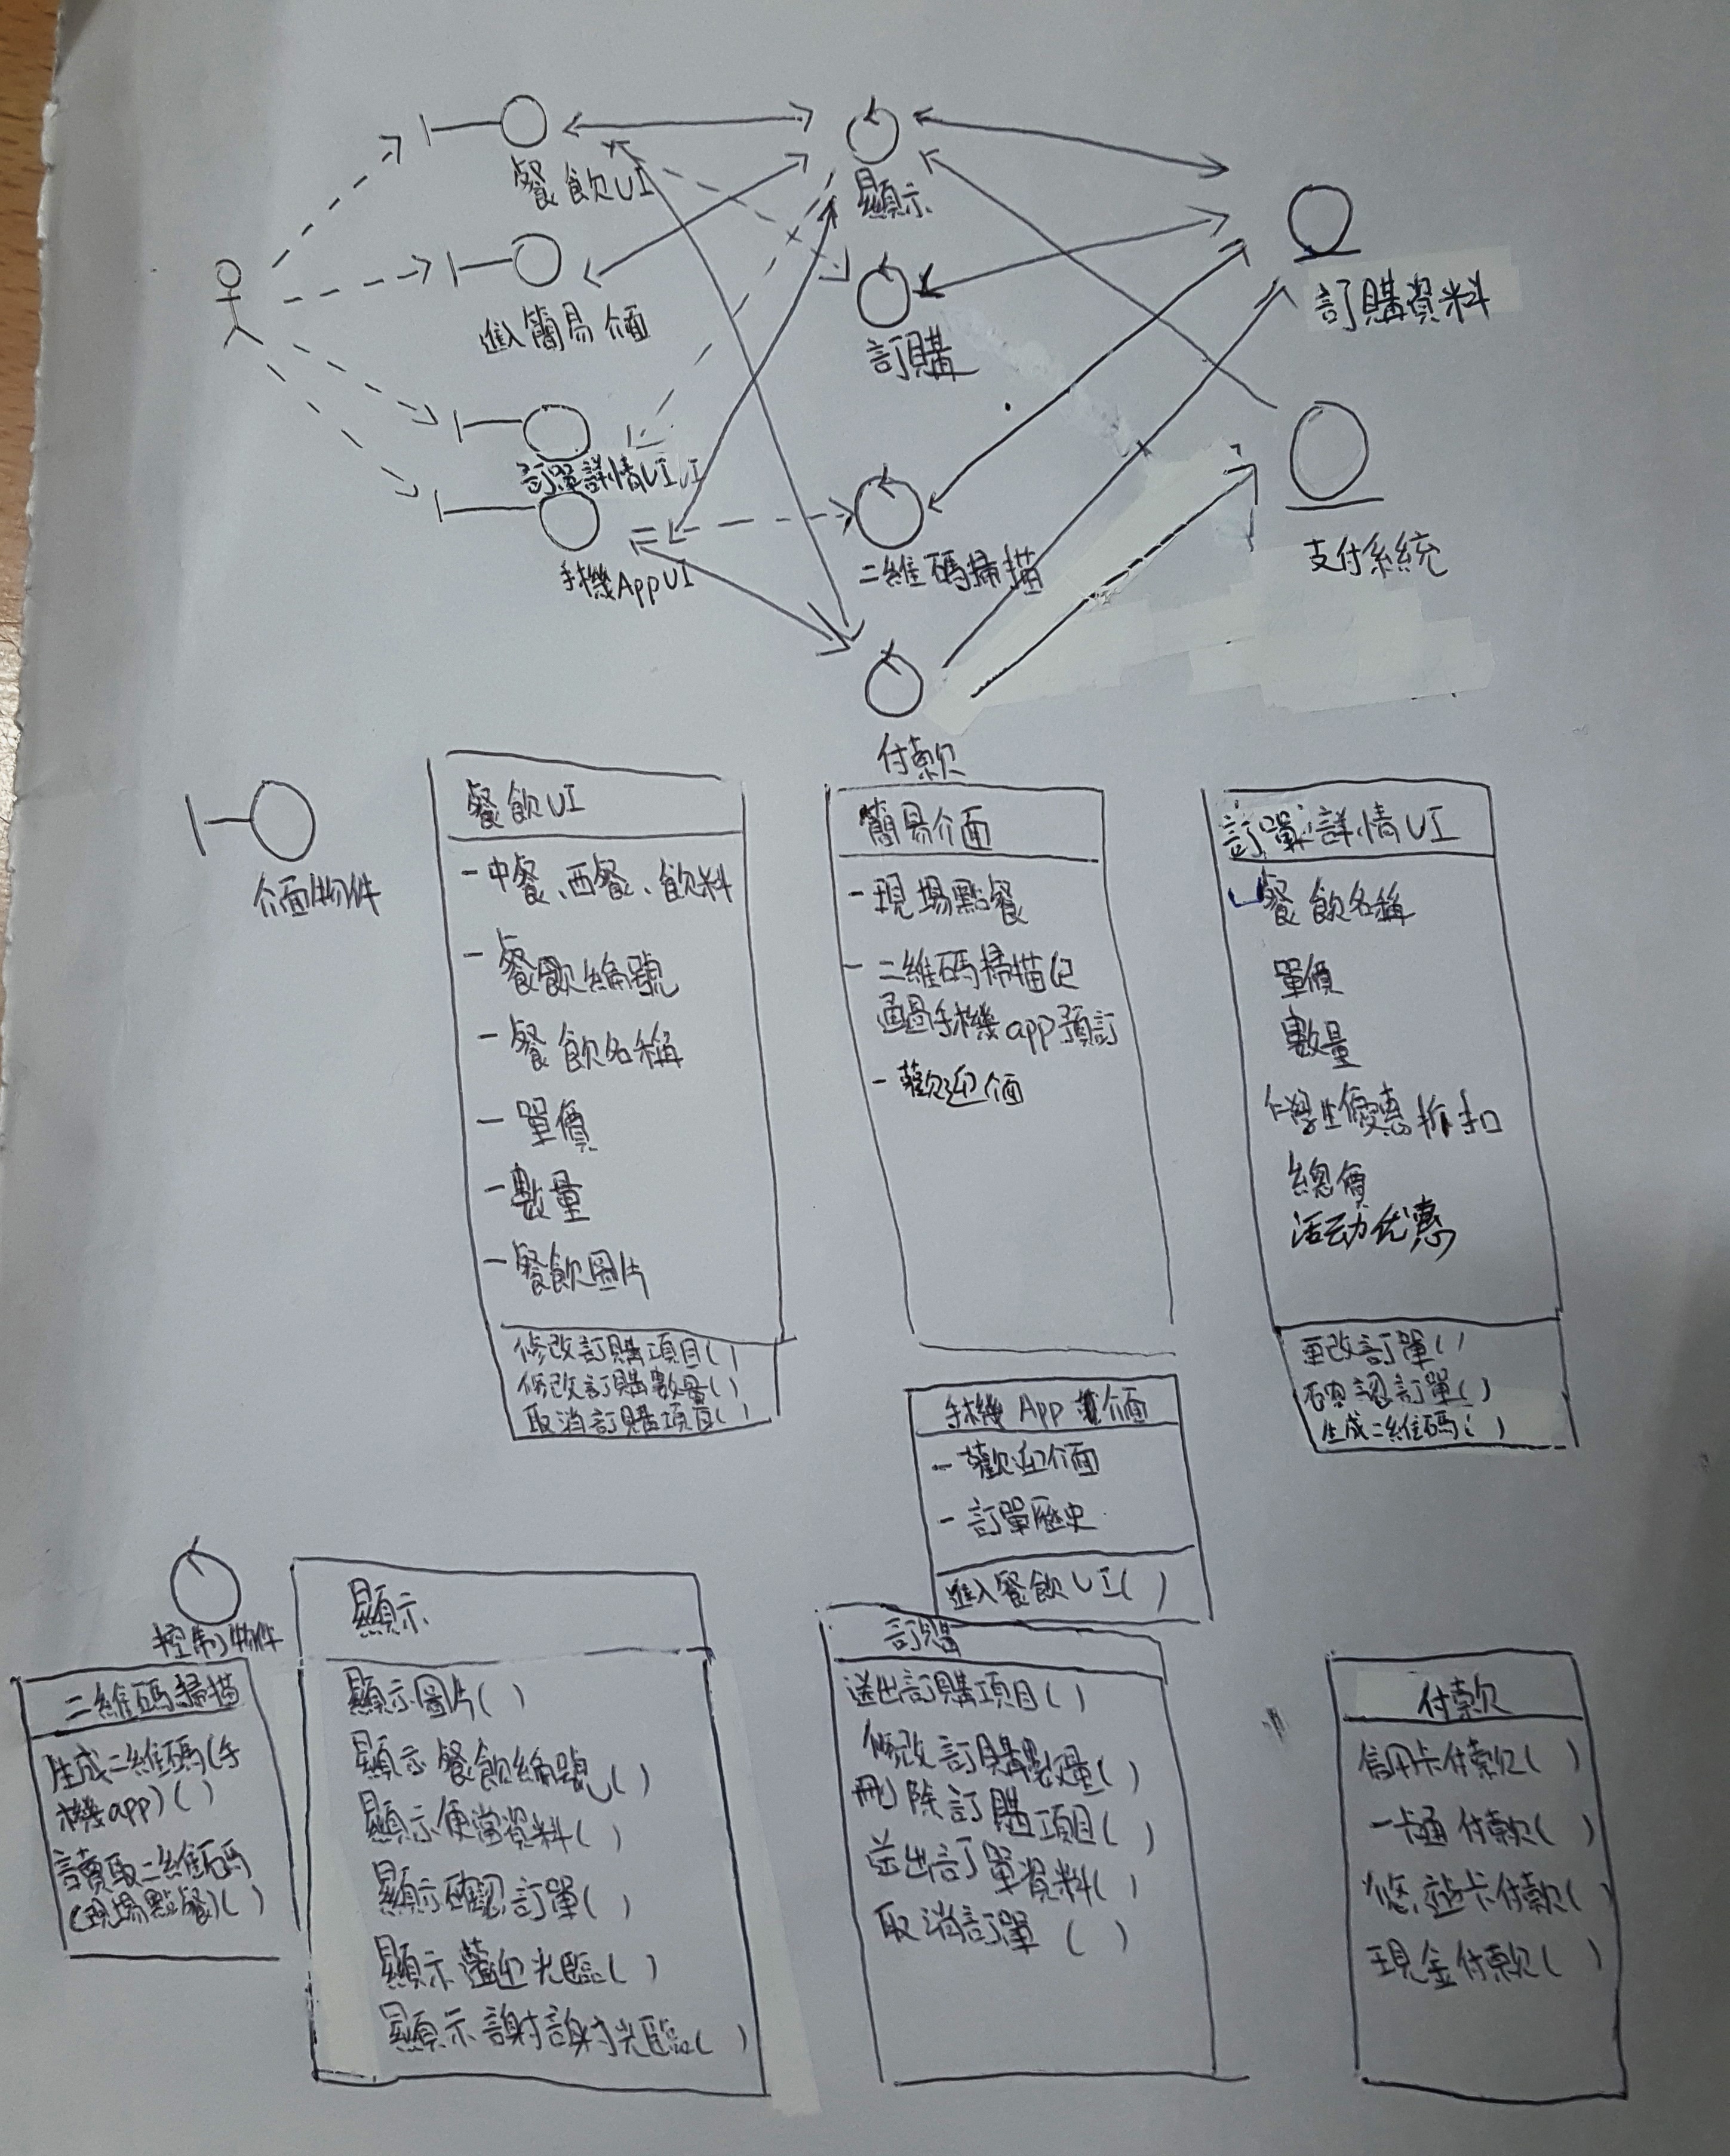 餐飲UI
顯示
進入簡易介面
訂購資料
訂購
訂單詳情UI UI
手機AppUI
二維碼掃描
支付系統
付款
介面物件
餐飲UI
-中餐、西餐、飲料
-餐飲編號
-餐飲名稱
-單價
-數量
-餐飲圖片
修改訂購項目()
修改訂購數量()
取消訂購項目()
簡易介面
-現場點餐
-二維碼掃描
通過手機app預訂
-歡迎介面
訂單詳情UI
餐飲名稱
單價
數量
學生優惠折扣
總價
活动优惠
更改訂單()
確認訂單()
生成二維碼()
手機App 介面
-歡迎介面
-訂單歷史
進入餐飲UI()
控制物件
二維碼掃描
生成二維碼(手
機app)()
讀取二維碼
(現場點餐)()
顯示
顯示圖片()
顯示餐飲編號()
顯示便當資料()
顯示確認訂單()
顯示歡迎光臨()
顯示謝謝光臨()
訂購
送出訂購項目()
修改訂購數量()
刪除訂購項目()
送出訂單資料()
取消訂單()
付款
信用卡付款()
一卡通付款()
悠遊卡付款()
現金付款()